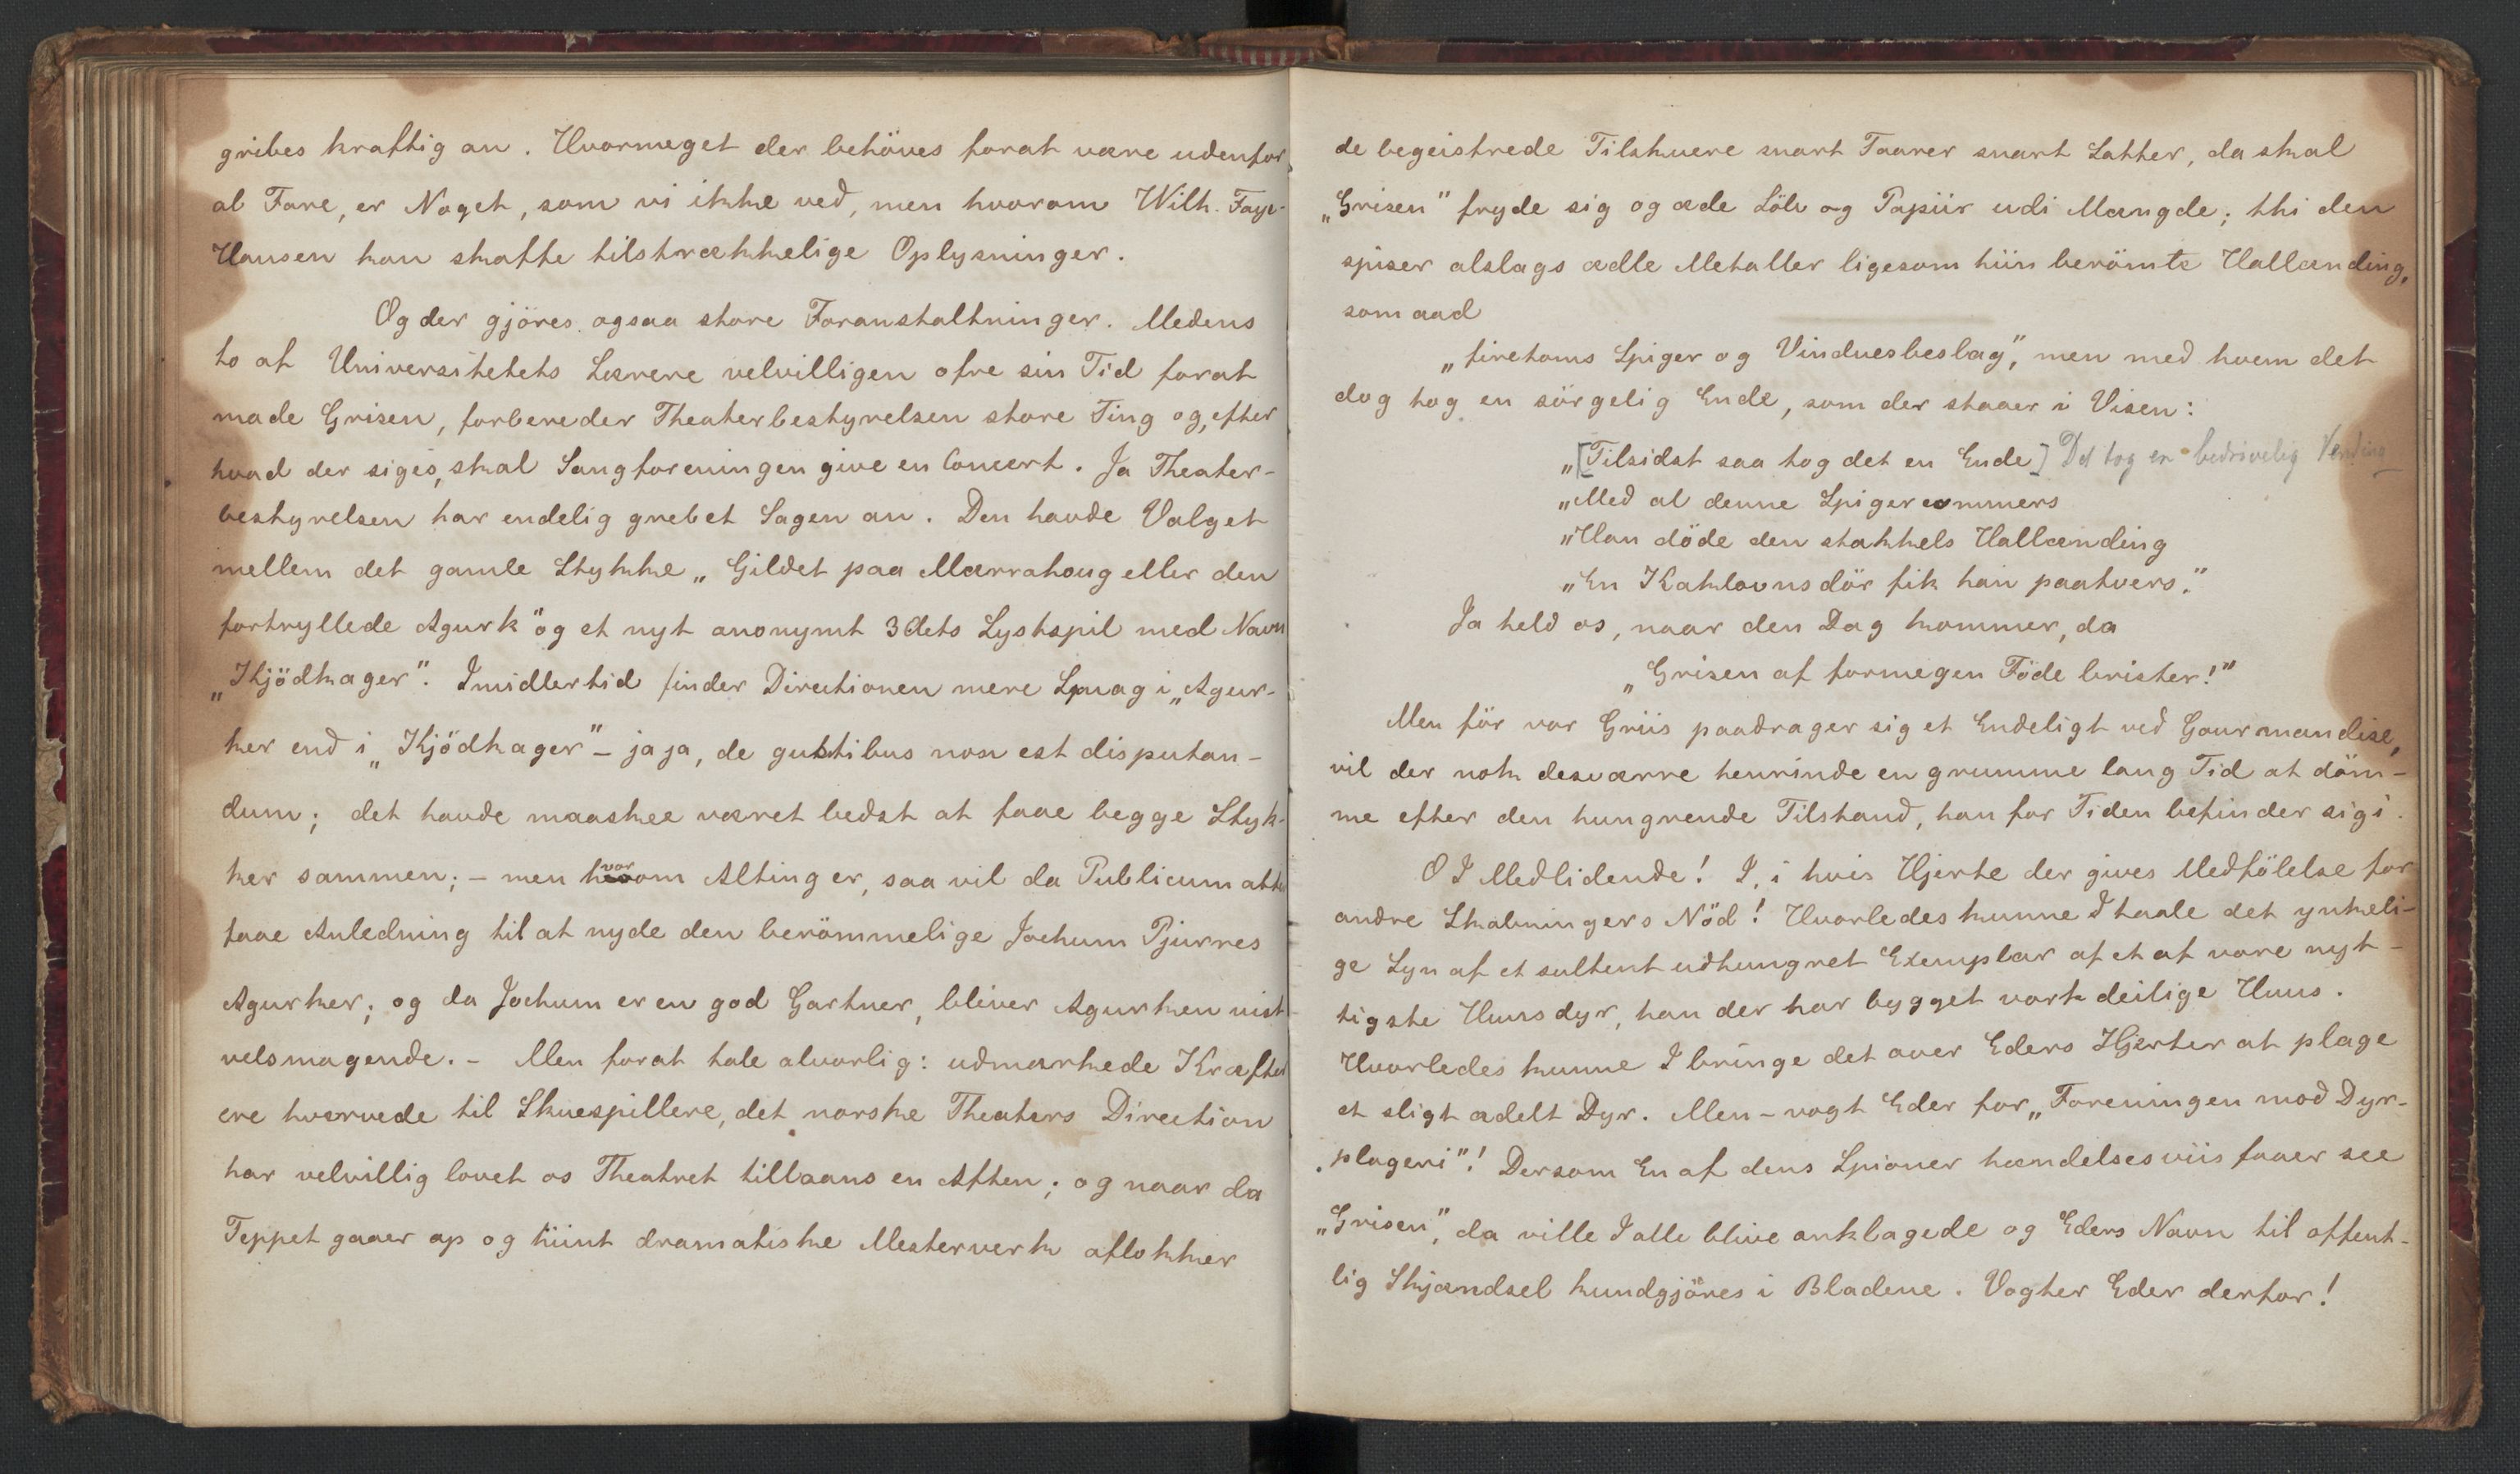 gribes kraftig an. Hvormeget der behöves forat være udenfor
al Fare, er Noget, som vi ikke ved, men hvorom Wilh. Faye-
Hansen kan skaffe tilstrækkelige Oplysninger.
Og der gjöres ogsaa store Foranstaltninger. Medens
to af Universitetets Lærere velvilligen ofre sin Tid forat
made Grisen, forbereder Theaterbestyrelsen store Ting og, efter
hvad der siges, skal Sangforeningen give en Concert. Ja Theater-
bestyrelsen har endelig grebet Sagen an. Den havde Valget
mellem det gamle Stykke „Gildet paa Mærrahoug eller den
fortryllede Agurk" og et nyt anonymt 3 Acts Lystspil med Navn
„Kjödkager". Imidlertid finder Directionen mere Smag i „Agur-
ker end i „Kjödkager" – ja ja, de gustibus non est disputan-
dum; det havde maaskee været bedst at faae begge Styk-
ker sammen; – men hvorom Alting er, saa vil da Publicum atter
faae Anledning til at nyde den berömmelige Jochum Pjurres
Agurker; og da Jochum er en god Gartner, bliver Agurken vist
velsmagende. – Men forat tale alvorlig: udmærkede Kræfter
ere hværvede til Skuespillere, det norske Theaters Direction
har velvillig lovet os Theatret tillaans en Aften; og naar da
Teppet gaaer op og hiint dramatiske Mesterverk aflokker
de begeistrede Tilskuere snart Taarer snart Latter, da skal
„Grisen" fryde sig og æde Sölv og Papiir udi Mængde; thi den
spiser alslags ædle Metaller ligesom hiin berömte Hallænding,
som aad
„firetoms Spiger og Vinduesbeslag", men med hvem det
dog tog en sörgelig Ende, som der staaer i Visen:
„[Tilsidst saa tog det en Ende] Det tog en bedrøvelig Vending
„Med al denne Spigercommers
„Han döde den stakkels Hallænding
„En Kaklovnsdör fik han paatvers."
Ja held os, naar den Dag kommer, da
„Grisen af formegen Föde brister!"
Men för vor Griis paadrager sig et Endeligt ved Gourmandise,
vil der nok desværre henrinde en grumme lang Tid at döm-
me efter den hungrende Tilstand, han for Tiden befinder sig i.
O I Medlidende! I, i hvis Hjerte der gives Medfölelse for
andre Skabningers Nöd! Hvorledes kunne I taale det ynkeli-
ge Syn af et sultent udhungret Exemplar af et af vore nyt-
tigste Huusdyr, han der har bygget vort deilige Huus.
Hvorledes kunne I bringe det over Eders Hjerter at plage
et sligt ædelt Dyr. Men – vogt Eder for „Foreningen mod Dyr-
plageri"! Dersom En af dens Spioner hændelsesviis faaer see
„Grisen", da ville I alle blive anklagede og Eders Navn til offent-
lig Skjændsel kundgjöres i Bladene. Vogter Eder derfor!